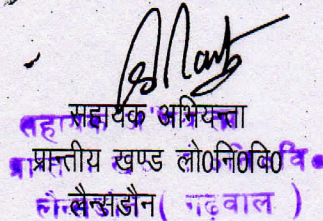 सहायक अभियन्ता
प्रान्तीय खण्ड लो0नि0वि0
लैन्सडौन ( गढ़वाल )